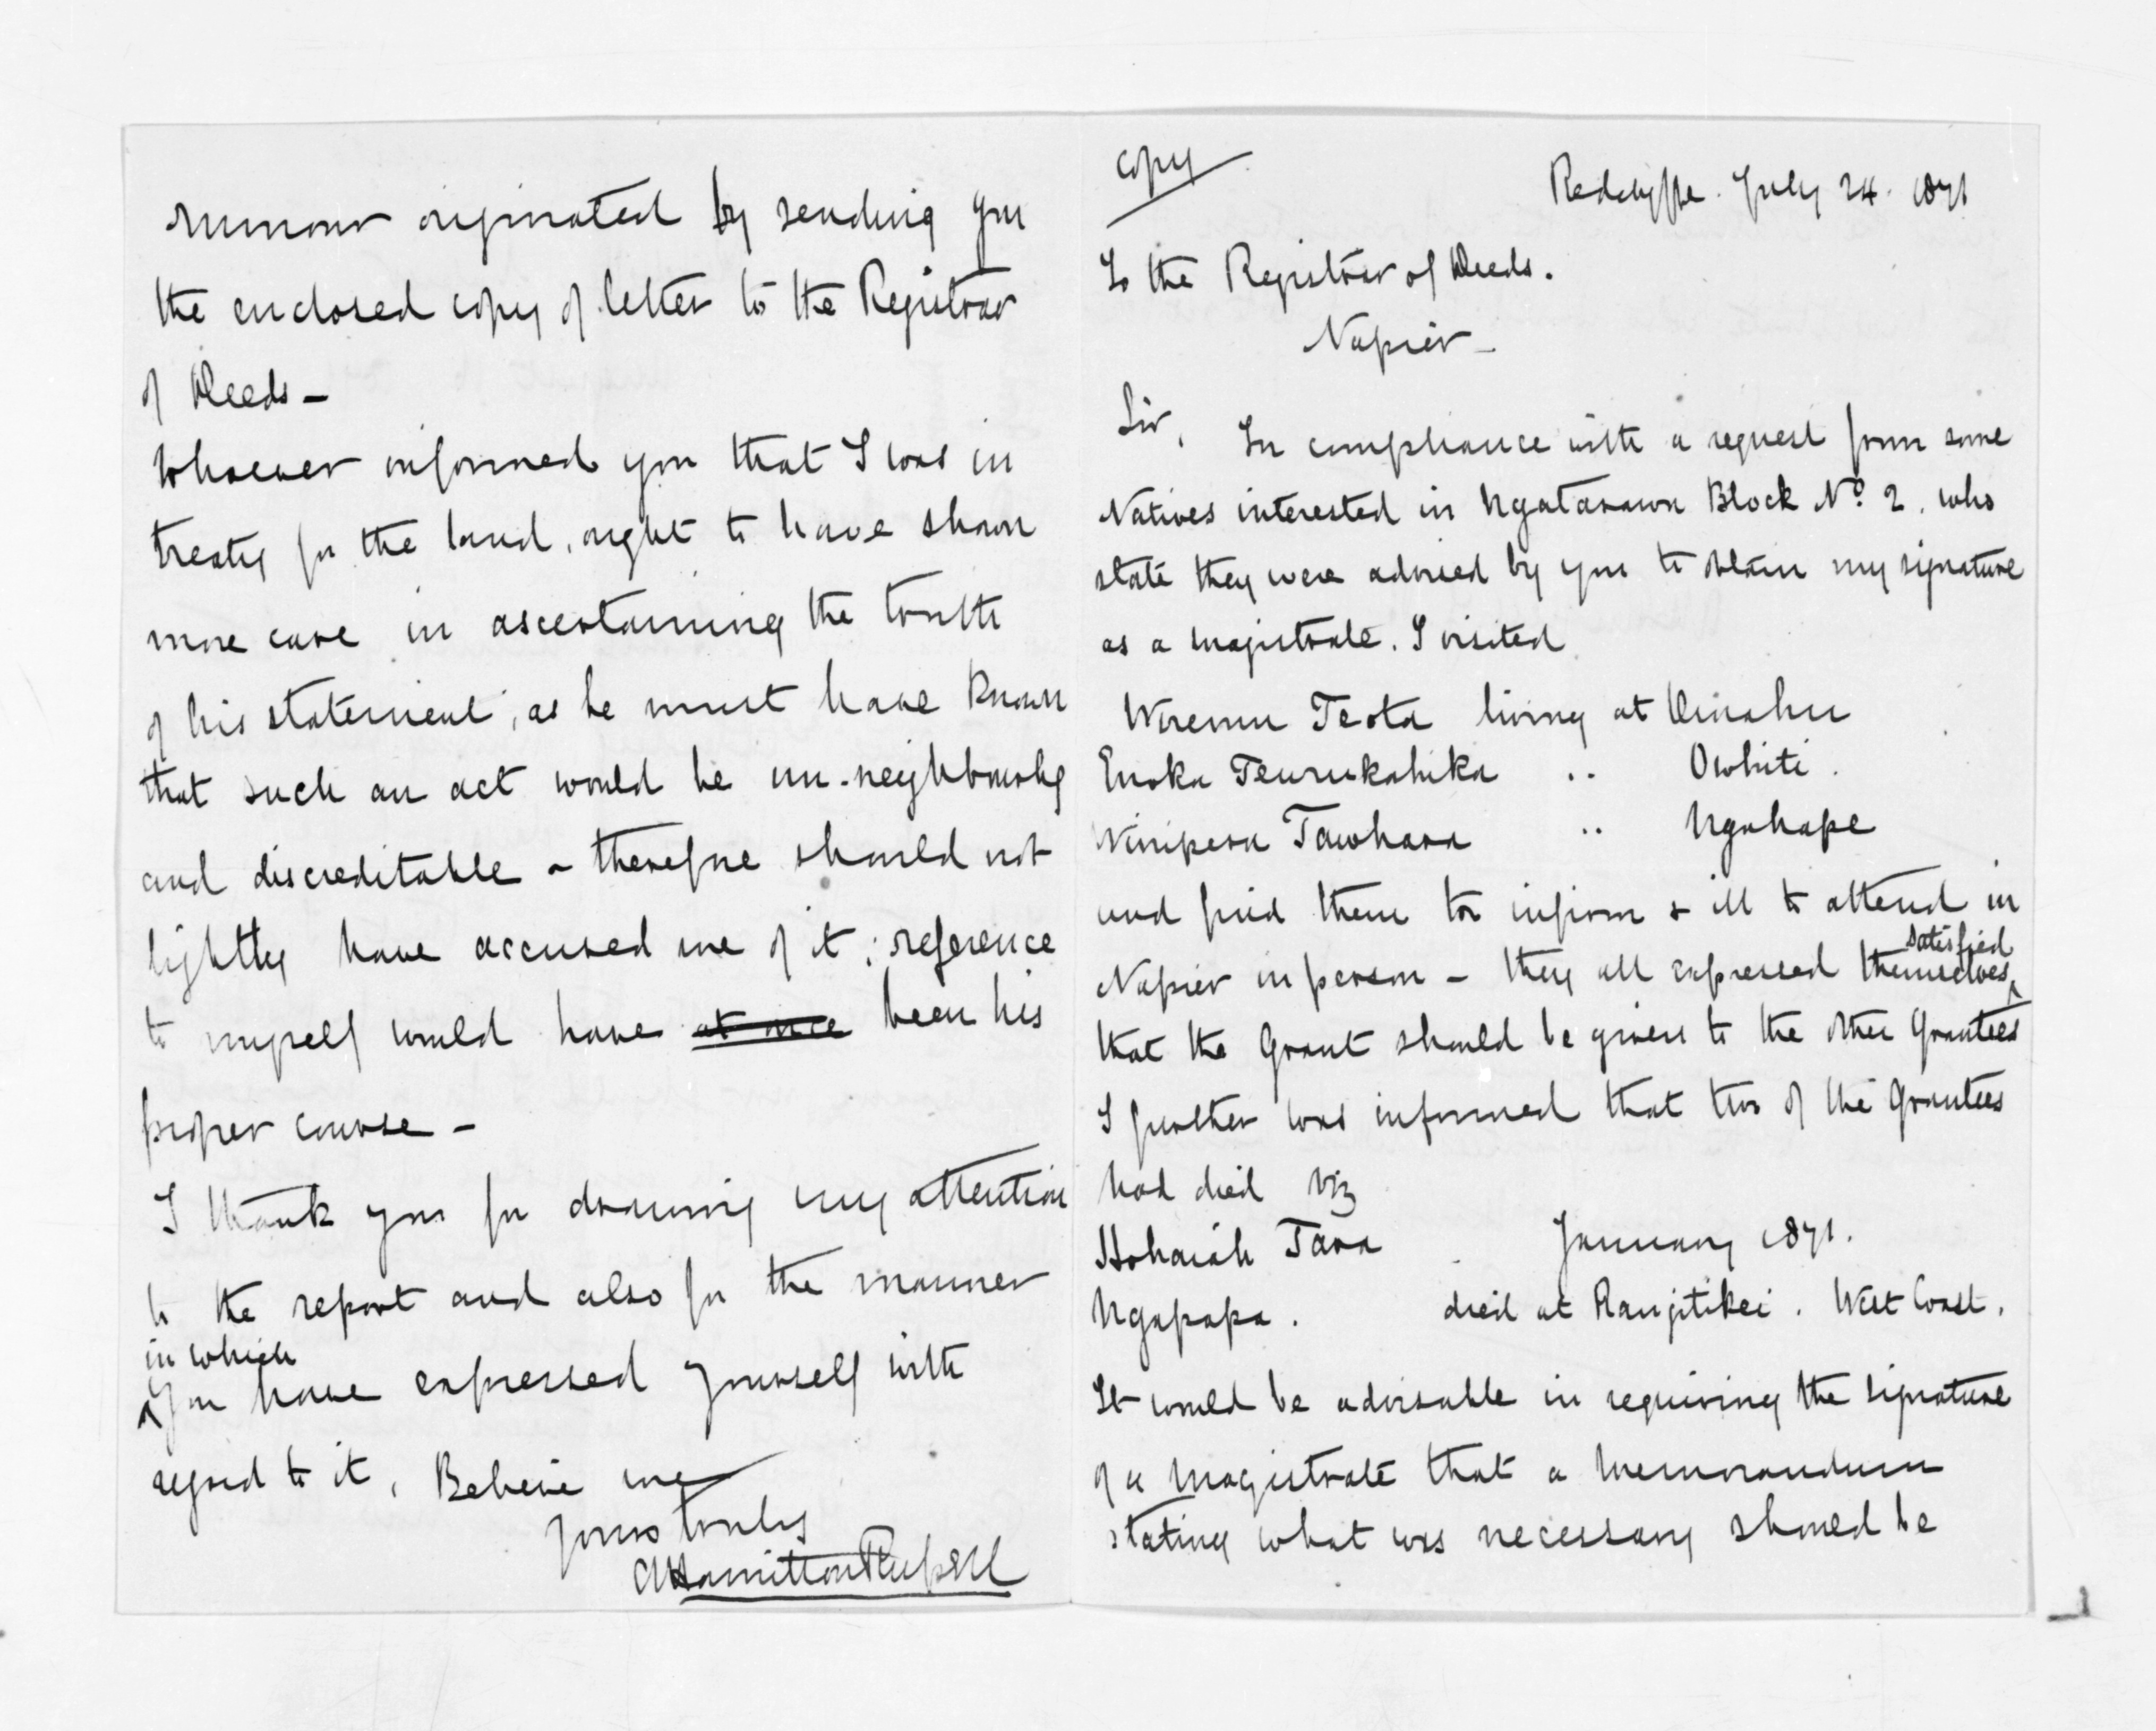 rumour originated by sending you
the enclosed copy of letter to the Registrar
of Deeds -
Whoever informed you that I was in
treaty for the land, ought to have shown
more care in ascertaining the truth
of his statement, as he must have known
that such an act would be un-neighbourly
and discreditable - therefore should not
lightly have accused me of it; reference
to myself would have at once been his
proper course -
I thank you for drawing my attention
to the report and also for the manner
in which
you have expressed yourself with
regard to it, Believe me
yours truly
AHamilton Russell
Copy
Redclyffe. July 24. 1871
To the Registrar of Deeds.
Napier -
Sir, In compliance with a request from some
Natives interested in Ngatarawa Block No. 2. who
state they were advised by you to obtain my signature
as a magistrate. I visited
Wiremu Teota living at Omahu
Enoka Teurukahika .. Owhiti.
Wiripera Tawhara .. Ngahape
and find them too infirm & ill to attend in
Napier in person - they all expressed themselves satisfied
that the Grant should be given to the other Grantees
I further was informed that two of the Grantees
had died viz
Hohaiah Tara January 1871.
Ngapapa. died at Rangitikei. West Coast.
It would be advisable in requiring the signature
of a Magistrate that a Memorandum
stating what was necessary should be